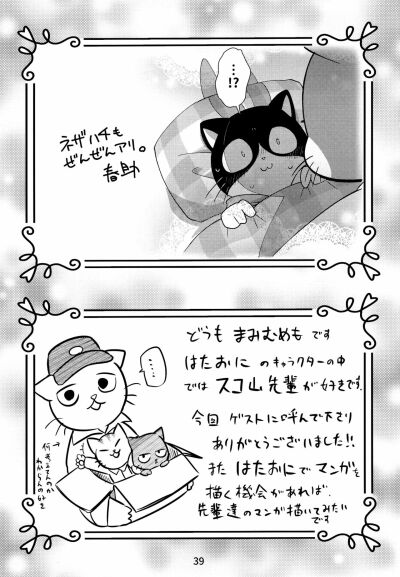 …!?
ネザハチも
ぜんぜんアリ。
春助
どうも まみむめも です
はたおに のキャラクターの中
では スコ山先輩 が好きです。
今回 ゲストに呼んで下さり
ありがとうございました!!
また はたおにで マンガを
描く機会があれば、
先輩達のマンガ描いてみたい
です
……
何考えてんのか
わからんの好き
39